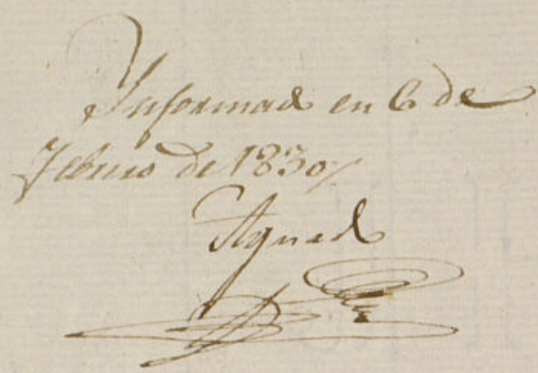 Informad en 6 de
Febrero de 1830,,
Aguad